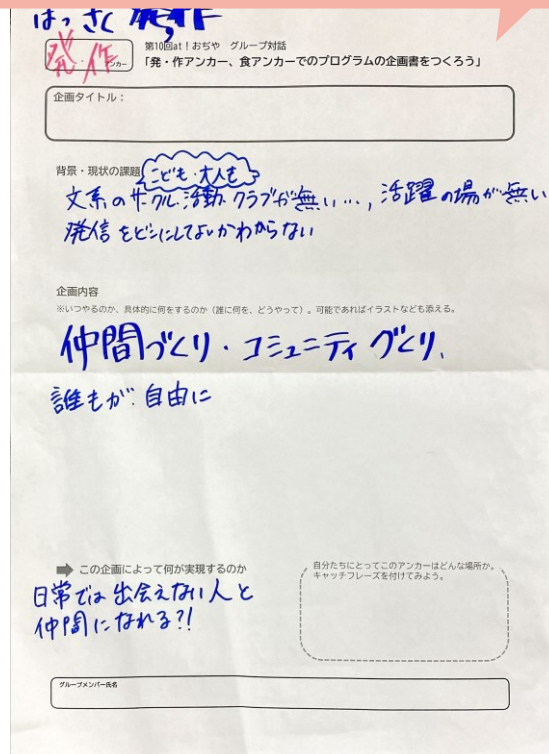 はっさく 発作
発・作 ンカー
第10回at！おぢや グループ対話
「発・作アンカー、食アンカーでのプログラムの企画書をつくろう」
企画タイトル：
背景・現状の課題
こども・大人も
文系のサークル活動クラブが無い…, 活躍の場が無い
発信をどこにしてよいかわからない
企画内容
※いつやるのか、具体的に何をするのか（誰に何を、どうやって）。可能であればイラストなども添える。
仲間づくり・コミュニティづくり、
誰もが 自由に
➡ この企画によって何が実現するのか
日常では出会えない人と
仲間になれる?!
自分たちにとってこのアンカーはどんな場所か。
キャッチフレーズを付けてみよう。
グループメンバー氏名